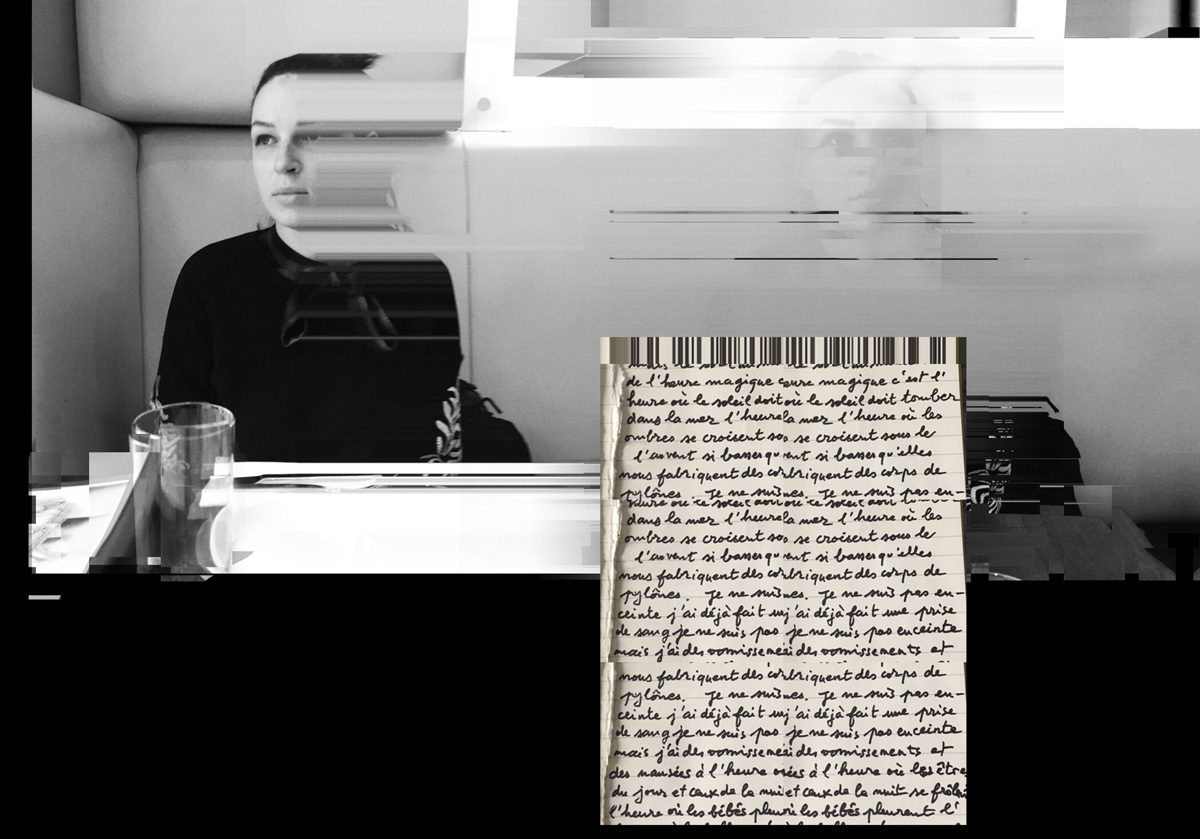 de l'heure magique eure magique c'est l'
heure où le soleil doit où le soleil doit tomber
dans la mer l'heure la mer l'heure où les
ombres se croisent so se croisent sous le
l'auvent si basses qu' ent si basses qu'elles
nous fabriquent des co briquent des corps de
pylônes. Je ne suis nes. Je ne suis pas en-
dans la mer l'heure la mer l'heure où les
ombres se croisent so se croisent sous le
l'auvent si basses qu' ent si basses qu'elles
nous fabriquent des co briquent des corps de
pylônes. Je ne suis nes. Je ne suis pas en-
ceinte j'ai déjà fait un j'ai déjà fait une prise
de sang je ne suis pas je ne suis pas enceinte
mais j'ai des vomisseme ai des vomissements et
nous fabriquent des co briquent des corps de
pylônes. Je ne suis nes. Je ne suis pas en-
ceinte j'ai déjà fait un j'ai déjà fait une prise
de sang je ne suis pas je ne suis pas enceinte
mais j'ai des vomisseme ai des vomissements et
des nausées à l'heure usées à l'heure où les être
du jour et ceux de la nuit et ceux de la nuit se
l'heure où les bébés pleur les bébés pleurent l'